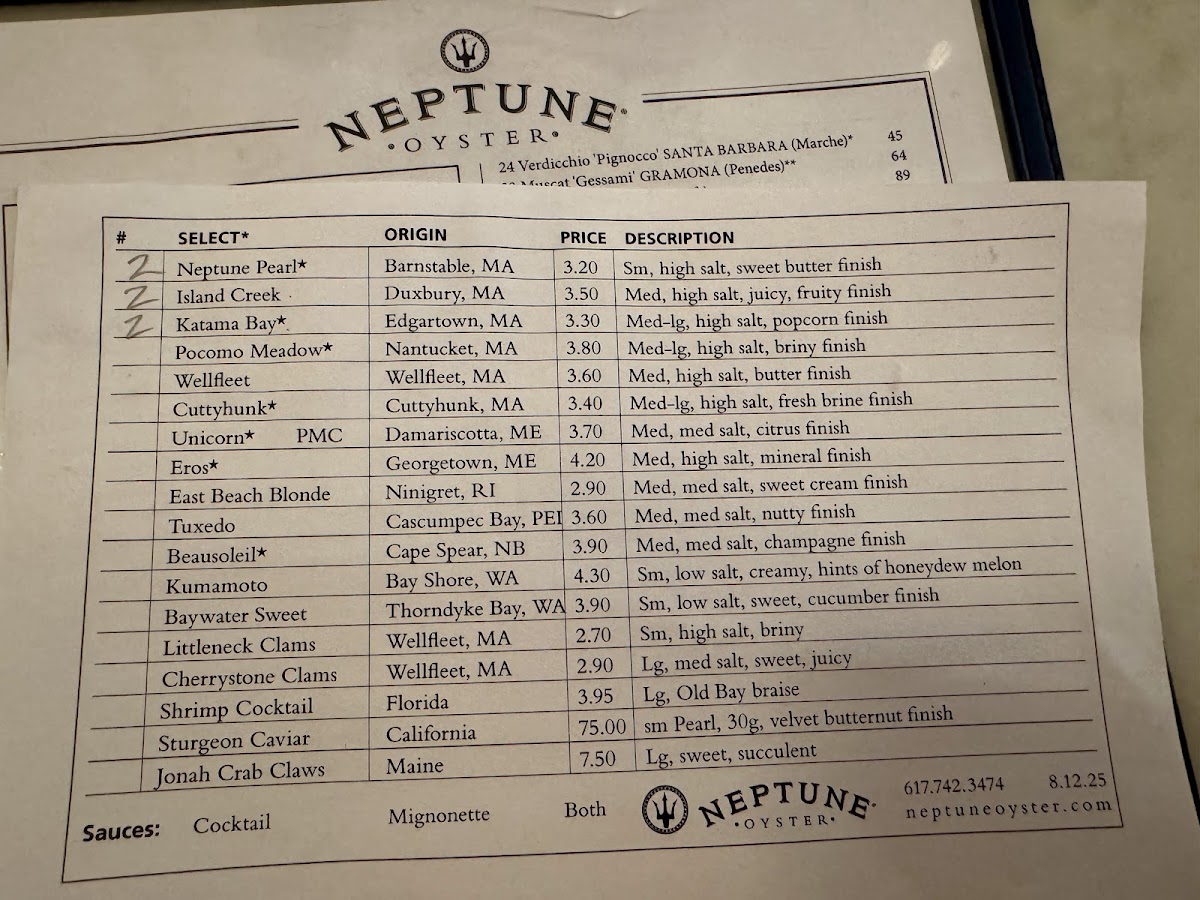 NEPTUNE
• OYSTER •
24 Verdicchio 'Pignocco' SANTA BARBARA (Marche)* 45
Muscat 'Gessami' GRAMONA (Penedes)** 64
89
# SELECT* ORIGIN PRICE DESCRIPTION
2 Neptune Pearl★ Barnstable, MA 3.20 Sm, high salt, sweet butter finish
2 Island Creek Duxbury, MA 3.50 Med, high salt, juicy, fruity finish
2 Katama Bay★ Edgartown, MA 3.30 Med-lg, high salt, popcorn finish
Pocomo Meadow★ Nantucket, MA 3.80 Med-lg, high salt, briny finish
Wellfleet Wellfleet, MA 3.60 Med, high salt, butter finish
Cuttyhunk★ Cuttyhunk, MA 3.40 Med-lg, high salt, fresh brine finish
Unicorn★ PMC Damariscotta, ME 3.70 Med, med salt, citrus finish
Eros★ Georgetown, ME 4.20 Med, high salt, mineral finish
East Beach Blonde Ninigret, RI 2.90 Med, med salt, sweet cream finish
Tuxedo Cascumpec Bay, PEI 3.60 Med, med salt, nutty finish
Beausoleil★ Cape Spear, NB 3.90 Med, med salt, champagne finish
Kumamoto Bay Shore, WA 4.30 Sm, low salt, creamy, hints of honeydew melon
Baywater Sweet Thorndyke Bay, WA 3.90 Sm, low salt, sweet, cucumber finish
Littleneck Clams Wellfleet, MA 2.70 Sm, high salt, briny
Cherrystone Clams Wellfleet, MA 2.90 Lg, med salt, sweet, juicy
Shrimp Cocktail Florida 3.95 Lg, Old Bay braise
Sturgeon Caviar California 75.00 sm Pearl, 30g, velvet butternut finish
Jonah Crab Claws Maine 7.50 Lg, sweet, succulent
Sauces: Cocktail Mignonette Both
NEPTUNE
• OYSTER •
617.742.3474 8.12.25
neptuneoyster.com